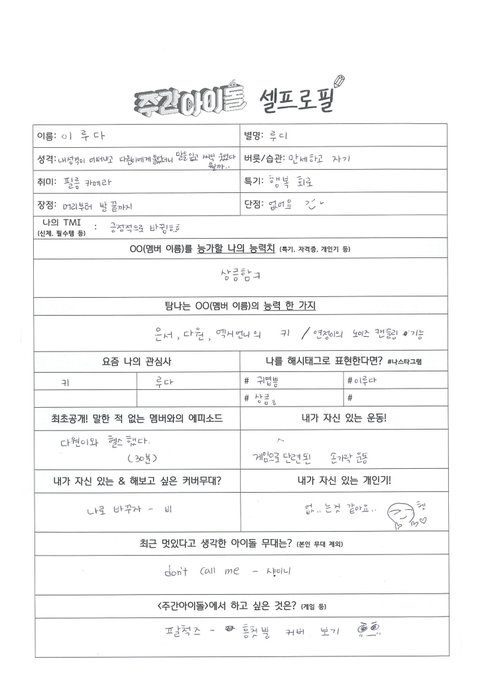 주간아이돌 셀프로필
이름: 이루다 별명: 루디
성격: 내성격이 어때냐고 다원이에게 물었더니 말을잃고 씨익 웃었다
버릇/습관: 만세하고 자기
취미: 필름 카메라 특기: 행복 회로
장점: 머리부터 발 끝까지 단점: 없어요
나의 TMI
(신체, 필수템 등) : 긍정적으로 바뀜요
OO(멤버 이름)를 능가할 나의 능력치 (특기, 자격증, 개인기 등)
상큼함
탐나는 OO(멤버 이름)의 능력 한 가지
은서, 다원, 엑시언니의 키 / 연정이의 노이즈 캔슬링 기능
요즘 나의 관심사 나를 해시태그로 표현한다면? #나스타그램
키 루다 # 귀염뽕 #이루다
# 상큼 #
최초공개! 말한 적 없는 멤버와의 에피소드 내가 자신 있는 운동!
다현이와 헬스했다.
(30분)
게임으로 단련된 손가락 운동
내가 자신 있는 & 해보고 싶은 커버무대? 내가 자신 있는 개인기!
나로 바꾸자 - 비 없..는것 같아요..
최근 멋있다고 생각한 아이돌 무대는? (본인 무대 제외)
don't call me - 샤이니
<주간아이돌>에서 하고 싶은 것은? (게임 등)
커버 보기